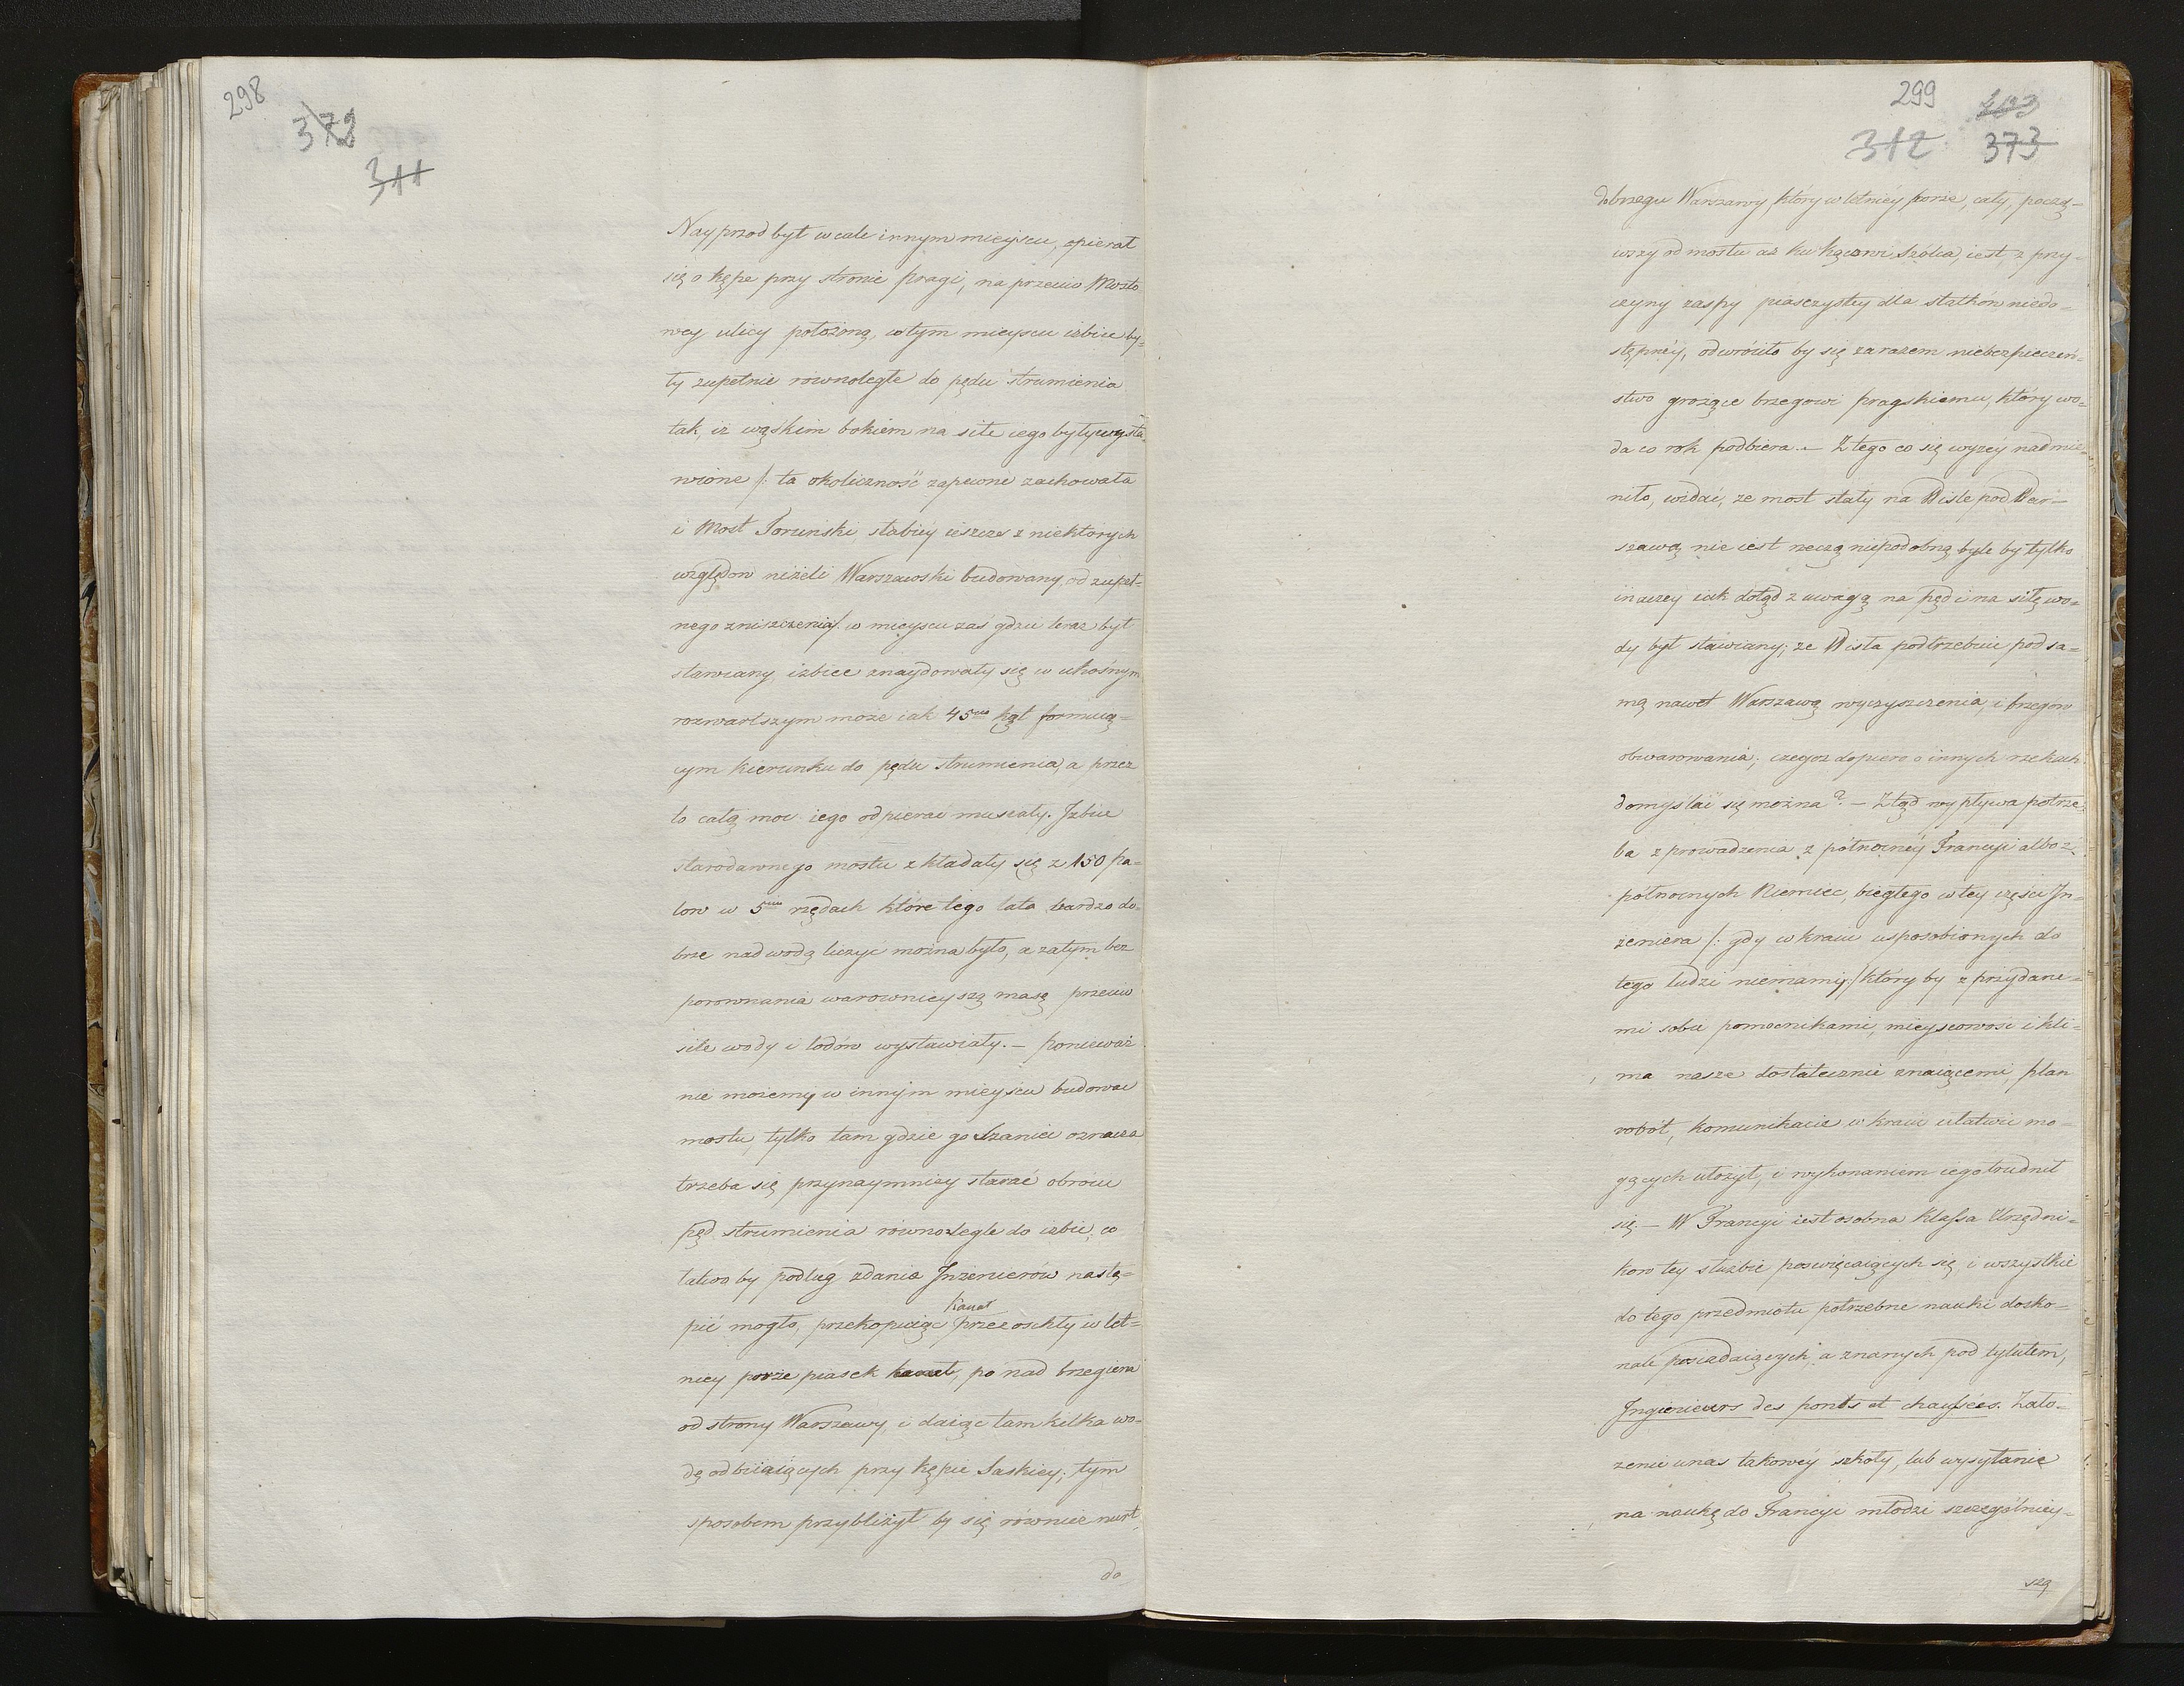 298
372
311
Nayprzod był wcale innym mieyscu, opierał
się o kępe przy stronie pragi, na przeciw Mosto
wey ulicy położoną, w tym mieyscu izbice by=
ły zupełnie równoległe do pędu strumienia
tak, iz wąskim bokiem na siłe iego były wysta
wione /: ta okoliczność zapewne zachowała
i Most Toruński, słabiéy ieszcze z niektórych
względow niżeli Warszawski budowany, od zupeł=
nego zniszczenia/. w mieyscu zaś gdzie teraz był
stawiany, izbice znaydowały się w ukośnym
rozwartszym może iak 45cio kąt formuią=
cym kierunku do pędu strumienia, a przez
to całą moc iego odpierać musiały. Izbice
starodawnego mostu składały się z 150 pa=
low w 5ciu rzędach które tego lata bardzo do=
brze nad wodą liczyć można było, a zatym bez
porownania warownieyszą masę przeciw
sile wody i lodów wystawiały. – ponieważ
nie możemy w innym mieyscu budować
mostu, tylko tam gdzie go Szaniec oznacza
trzeba się przynaymniey starać obrócić
pęd strumienia równolegle do izbic, co
łatwo by podług zdania Inżenierów nastą=
Kanał
pić mogło, przekopuiąc przez oschły w let=
niey porze piasek kanał, po nad brzegiem
od strony Warszawy, i daiąc tam kilka wo=
dę odbiiaiących przy kępie Saskiey; tym
sposobem przybliżył by się równiez nurt,
do
299
403
312 373
do brzegu Warszawy, który w letniéy porze, cały, począ=
wszy od mostu aż ku kącowi Szólca, iest z przy=
czyny zaspy piasczystey dla statków niedo=
stępnéy, odwróciło by się zarazem niebezpieczeń=
stwo grożące brzegowi pragskiemu, który wo=
da co rok podbiera. – Z tego co się wyzéy nadmie=
niło, widać, ze most stały na Wiśle pod War=
szawą nie iest rzeczą niepodobną byle by tylko
inaczey iak dotąd z uwagą na pęd i na siłę wo=
dy był stawiany; ze Wisła podtrzebuie pod sa=
mą nawet Warszawą wyczyszczenia, i brzegów
obwarowania; czegoz dopiero o innych rzekach
domyślać się można? – Ztąd wypływa potrze=
ba sprowadzenia z północnéy Francyi albo z
północnych Niemiec, biegłego w tey części In=
żeniera /: gdy w kraiu usposobionych do
tego ludzi niemamy:/ który by z przydane=
mi sobie pomocnikami, mieyscowość i kli=
ma nasze dostatecznie znaiącemi, plan
robót, komunikacie w kraiu ułatwić mo=
gących ułożył, i wykonaniem iego trudnił
się. – W Francyi iest osobna klassa Urzędni=
kow tey służbie poswięcaiących się i wszystkie
do tego przedmiotu potrzebne nauki dosko=
nale posiadaiących, a znanych pod tytułem,
Ingenieurs des ponts et chaussées. Zało=
zenie u nas takowéy szkoły, lub wysyłanie
na naukę do Francyi młodzi szczególniey=
szą